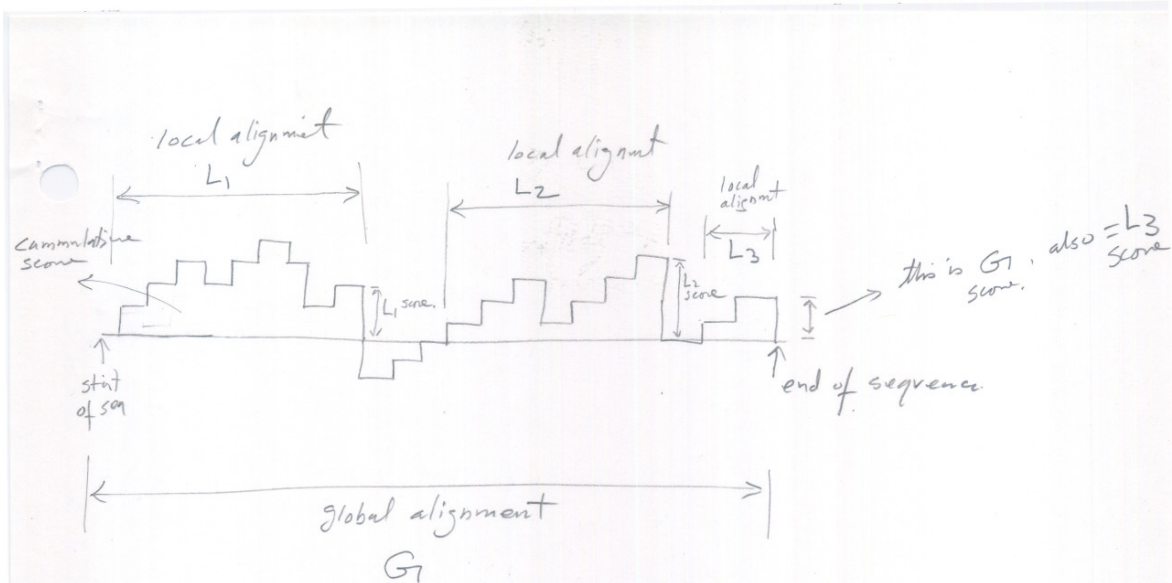 local alignmet
L1
local alignmt
L2
local
alignmt
L3
cammulative
score
L1 score.
L2
score
this is G score. also = L3 score
start
of seq
end of sequence.
global alignment
G